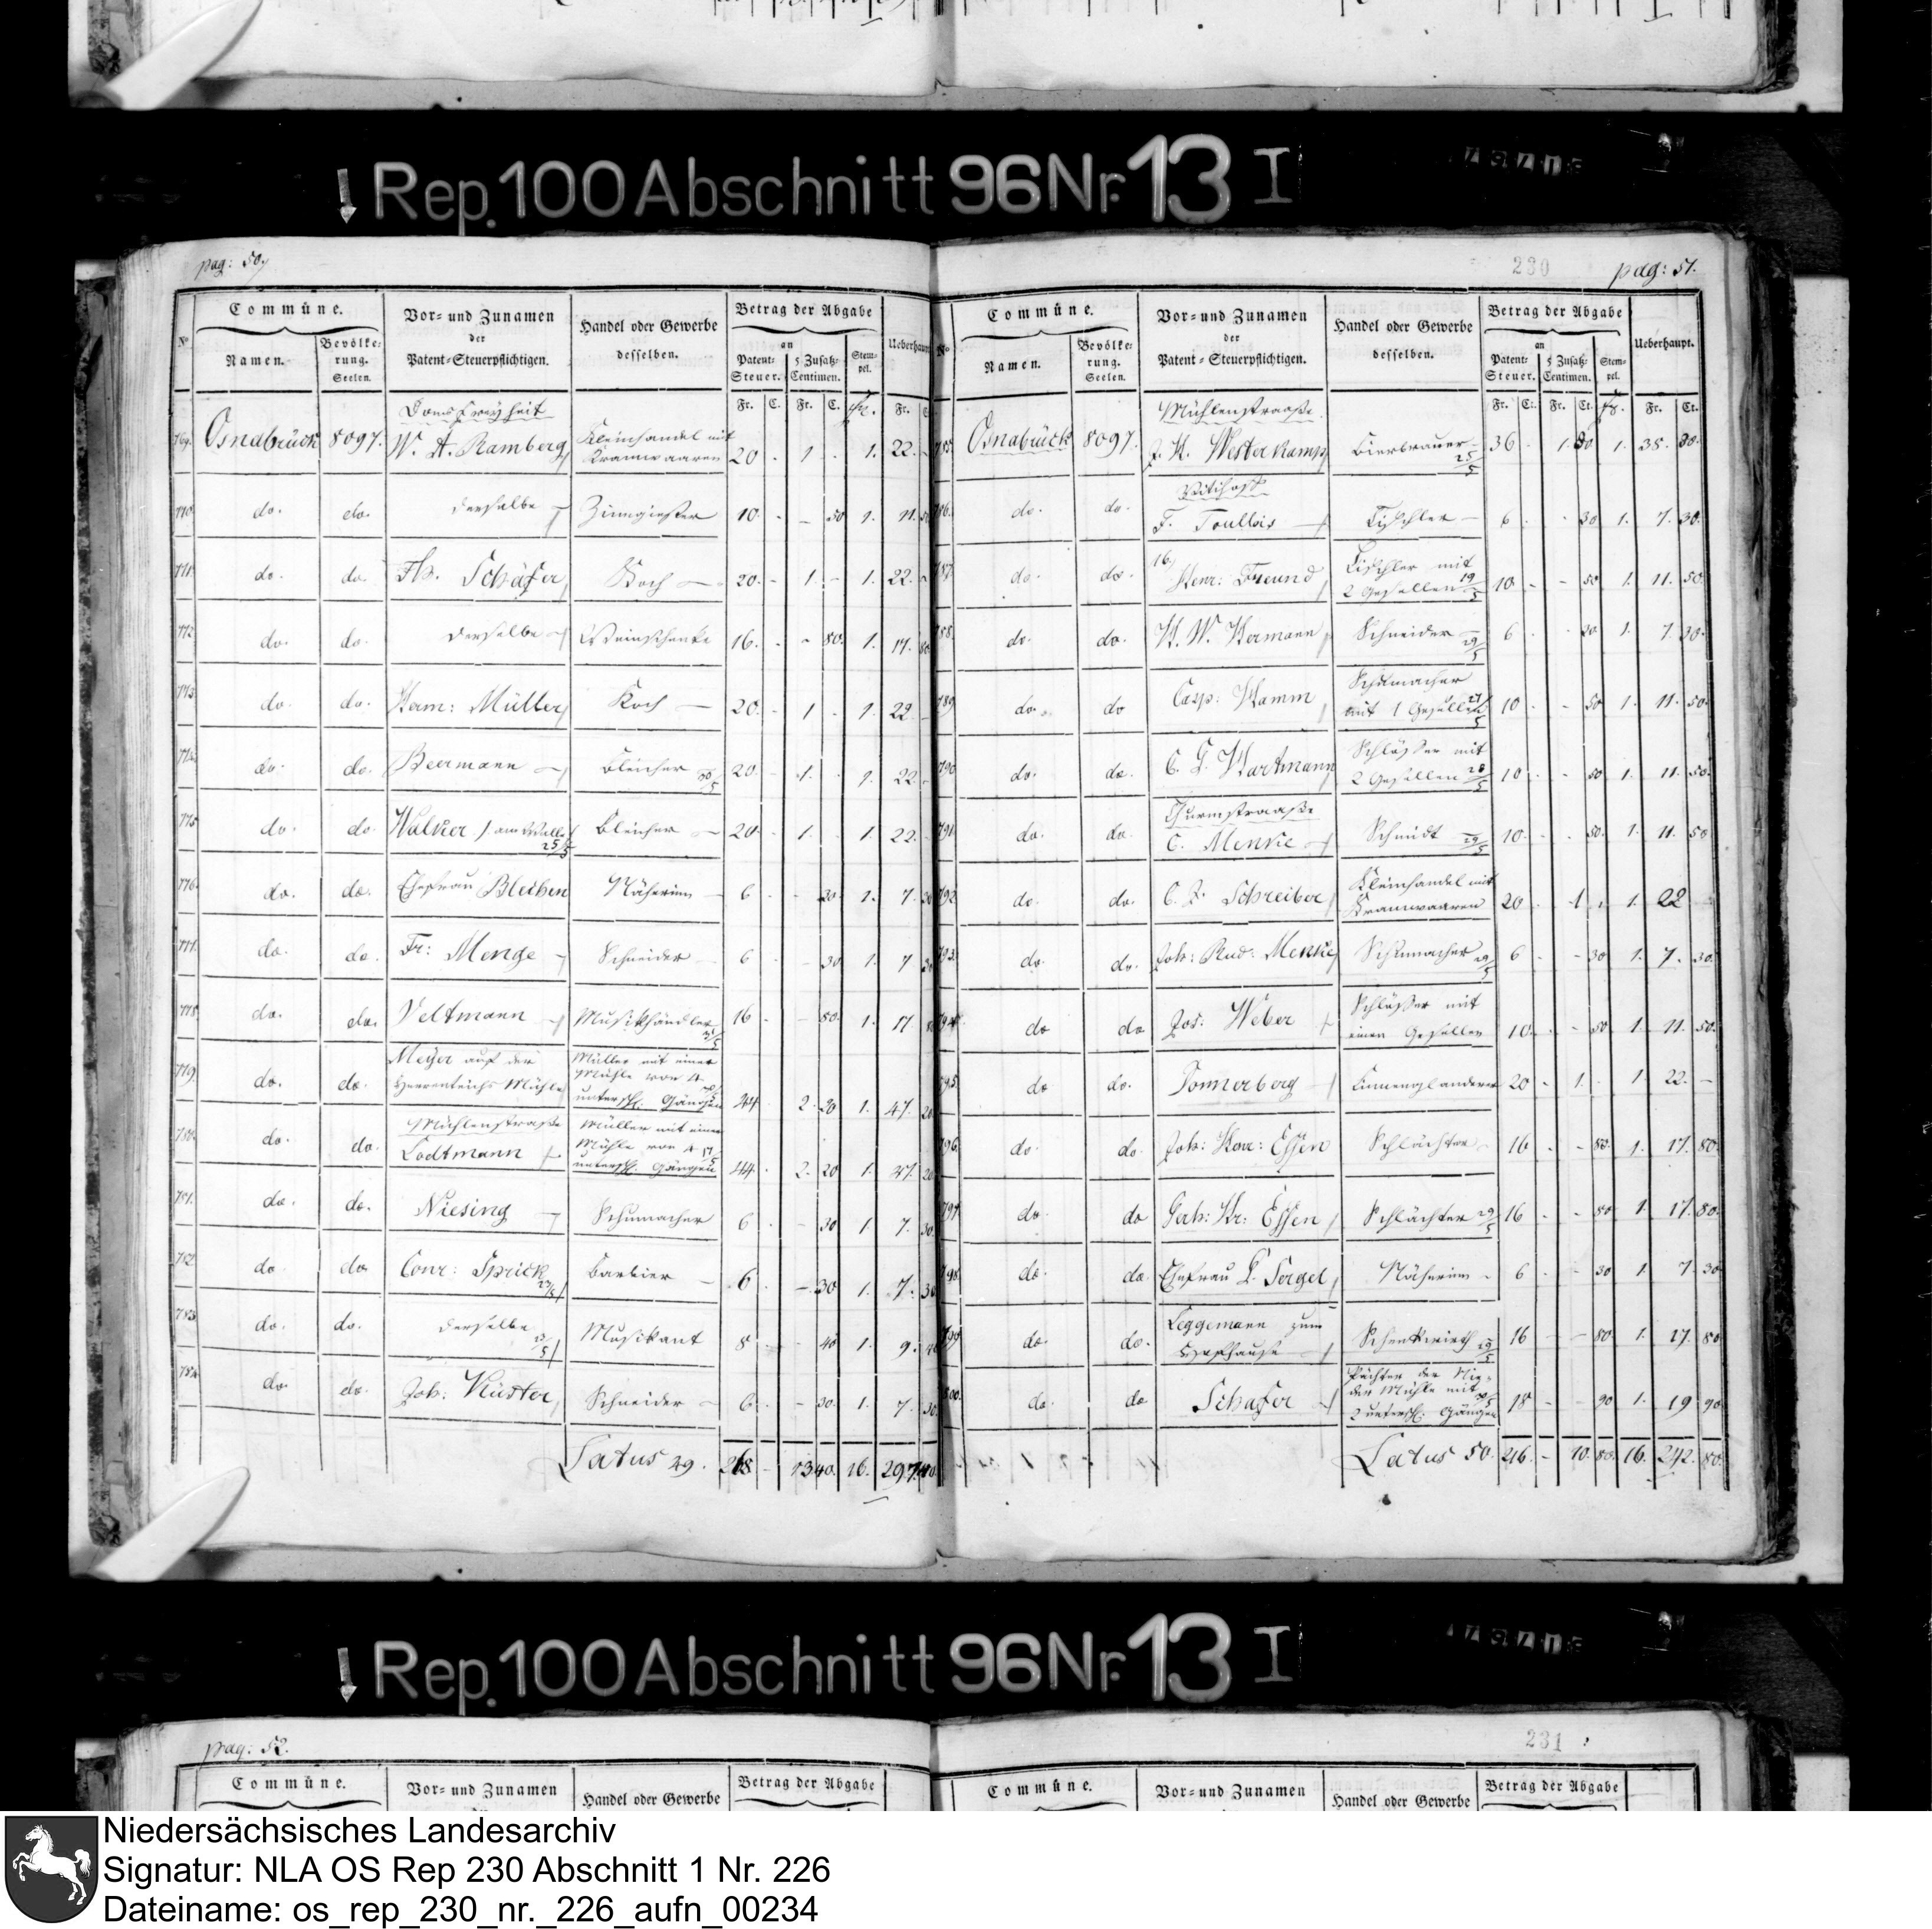 Rep. 100 Abschnitt 96 Nr. 13 I
pag: 50.
Commüne.
Vor- und Zunamen
der
Patent-Steuerpflichtigen.
Handel oder Gewerbe
desselben.
Betrag der Abgabe
an
Ueberhaupt
No
Namen.
Bevölke-
rung.
Seelen.
Patent-
Steuer.
5 Zusatz-
Centimen.
Stem-
pel.
Fr. C. Fr. C. Fr. Fr. C.
Domsfreyheit
769. Osnabrück 8097. W. A. Ramberg Kleinhandel mit Kramwaaren 20 - 1 - 1. 22. -
770. do. do. derselbe Zinngießer 10. - - 50 1. 11. 50
771. do. do. Fh. Schäfer Koch 20. - 1. - 1. 22. -
772. do. do. derselbe Weinschenke 16. - - 80. 1. 17. 80
773. do. do. Herm: Müller Koch 20. - 1 - 1. 22. -
774. do. do. Beermann Bleicher 20. - 1. - 1. 22. -
775. do. do. Walker / am Walle 25/5 Bleicher 20. - 1. - 1. 22. -
776. do. do. Ehefrau Bleiben Näherinn 6 - - 30. 1. 7. 30
777. do. do. Fr: Menge Schneider 6 - - 30 1. 7 30
778. do. do. Veltmann Musikhändler 16 - - 80. 1. 17. 80
779. do. do. Meyer auf der Herrenteichs Mühle Müller mit einer Mühle von 4 unterschl. Gängen 44 2. 20 1. 47. 20
Mühlenstraße
780. do. do. Lodtmann Müller mit einer Mühle von 4 unterschl. Gängen 44. 2. 20 1. 47. 20
781. do. do. Niesing Schumacher 6 - - 30 1. 7. 30.
782 do. do. Conr: Sprick Barbier 6 - - 30 1. 7. 30
783 do. do. derselbe Musikant 8 - - 40 1. 9. 40
784 do. do. Joh: Küster Schneider 6. - - 30. 1. 7. 30.
Latus 49. 268 - 13 40. 16. 297. 40.
230
pag: 51.
Commüne.
Vor- und Zunamen
der
Patent-Steuerpflichtigen.
Handel oder Gewerbe
desselben.
Betrag der Abgabe
an
Ueberhaupt.
No
Namen.
Bevölke-
rung.
Seelen.
Patent-
Steuer.
5 Zusatz-
Centimen.
Stem-
pel.
Fr. Ct. Fr. Ct. Fr. Fr. Ct.
Mühlenstraaße.
785. Osnabrück 8097. J. H. Westerkamp Bierbrauer 25/5 36 1. 80 1. 38. 80.
786. do. do. F. Toullois Tischler 6 - - 30 1. 7. 30.
787. do. do. Henr: Freund Tischler mit 2 Gesellen 19/5 10 - - 50 1. 11. 50.
788. do. do. H. W. Hermann Schneider 29/5 6 - - 30 1. 7. 30.
789 do. do Casp: Hamm Schumacher mit 1 Gesellen 10 - - 50 1. 11. 50.
790 do. do. C. L. Hartmann Schlößer mit 2 Gesellen 28/5 10 - - 50 1. 11. 50.
Thurmstraaße
791. do. do. C. Menke Schmidt 29/5 10 - - 50. 1. 11. 50
792. do. do. C. F. Schreiber Kleinhandel mit Kramwaaren 20 - 1 - 1. 22
793. do. do. Joh: Rud: Menke Schumacher 6 - - 30 1. 7. 30.
794. do do Jos: Weber Schlößer mit einen Gesellen 10. - - 50 1. 11. 50.
795. do do. Sonnerberg 20 - 1. - 1 22. -
796. do. do. Joh: Henr: Essen Schlächter 16 - - 80. 1. 17. 80
797 do. do Gerh: Hr: Essen Schlächter 29/5 16 - - 80 1. 17. 80.
798. do. do. Ehefrau L. Sergel Näherinn 6 - - 30 1. 7 30
799 do. do. Leggemann zum Schenkwirth 29/5 16 - - 80. 1. 17. 80
800. do. do Schafer Pächter der Mühle mit 2 unterschl. Gängen 18 - 90 1. 19 90
Latus 50. 216. - 10. 80. 16. 242. 80.
Rep. 100 Abschnitt 96 Nr. 13 I
pag: 52.
231
Commüne.
Vor- und Zunamen
Handel oder Gewerbe
Betrag der Abgabe
Commüne.
Vor- und Zunamen
Handel oder Gewerbe
Betrag der Abgabe
Niedersächsisches Landesarchiv
Signatur: NLA OS Rep 230 Abschnitt 1 Nr. 226
Dateiname: os_rep_230_nr._226_aufn_00234